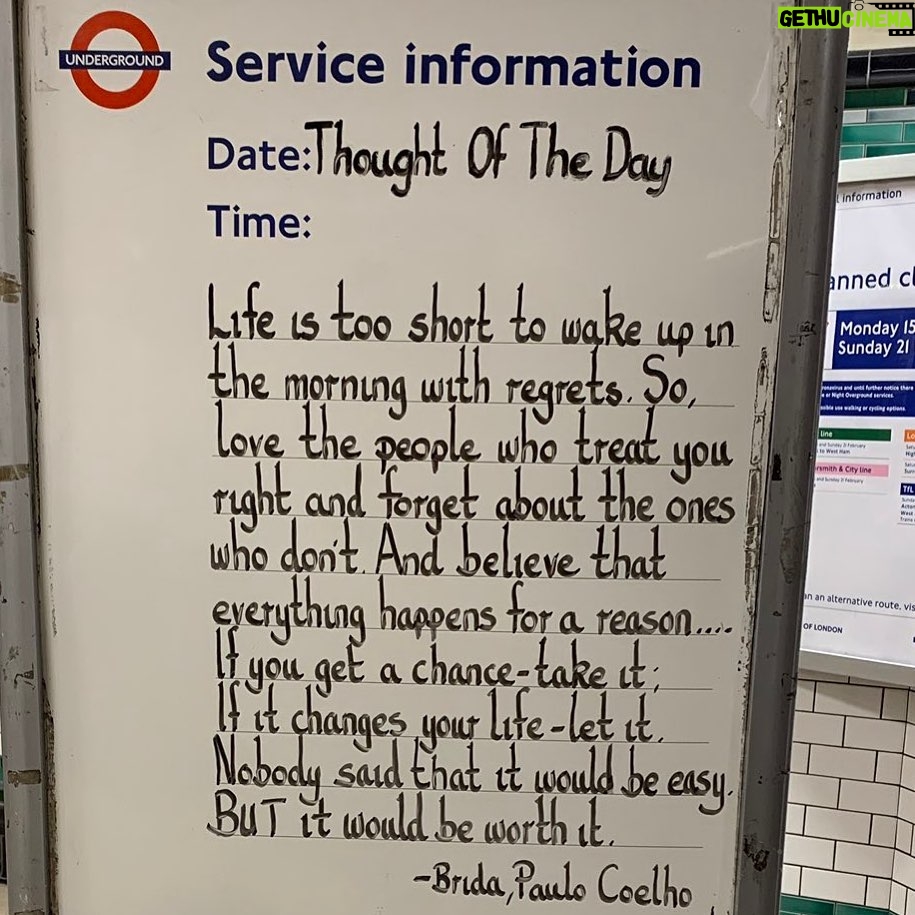 GETHUCINEMA
UNDERGROUND
Service information
Date: Thought Of The Day
Time:
Life is too short to wake up in
the morning with regrets. So,
love the people who treat you
right and forget about the ones
who don't. And believe that
everything happens for a reason....
If you get a chance-take it;
If it changes your life-let it.
Nobody said that it would be easy.
BUT it would be worth it.
-Brida, Paulo Coelho
information
anned cl
Monday 15
Sunday 21
line
to West Ham
rsmith & City line
and Sunday 21 February
TfL
an alternative route, vis
OF LONDON